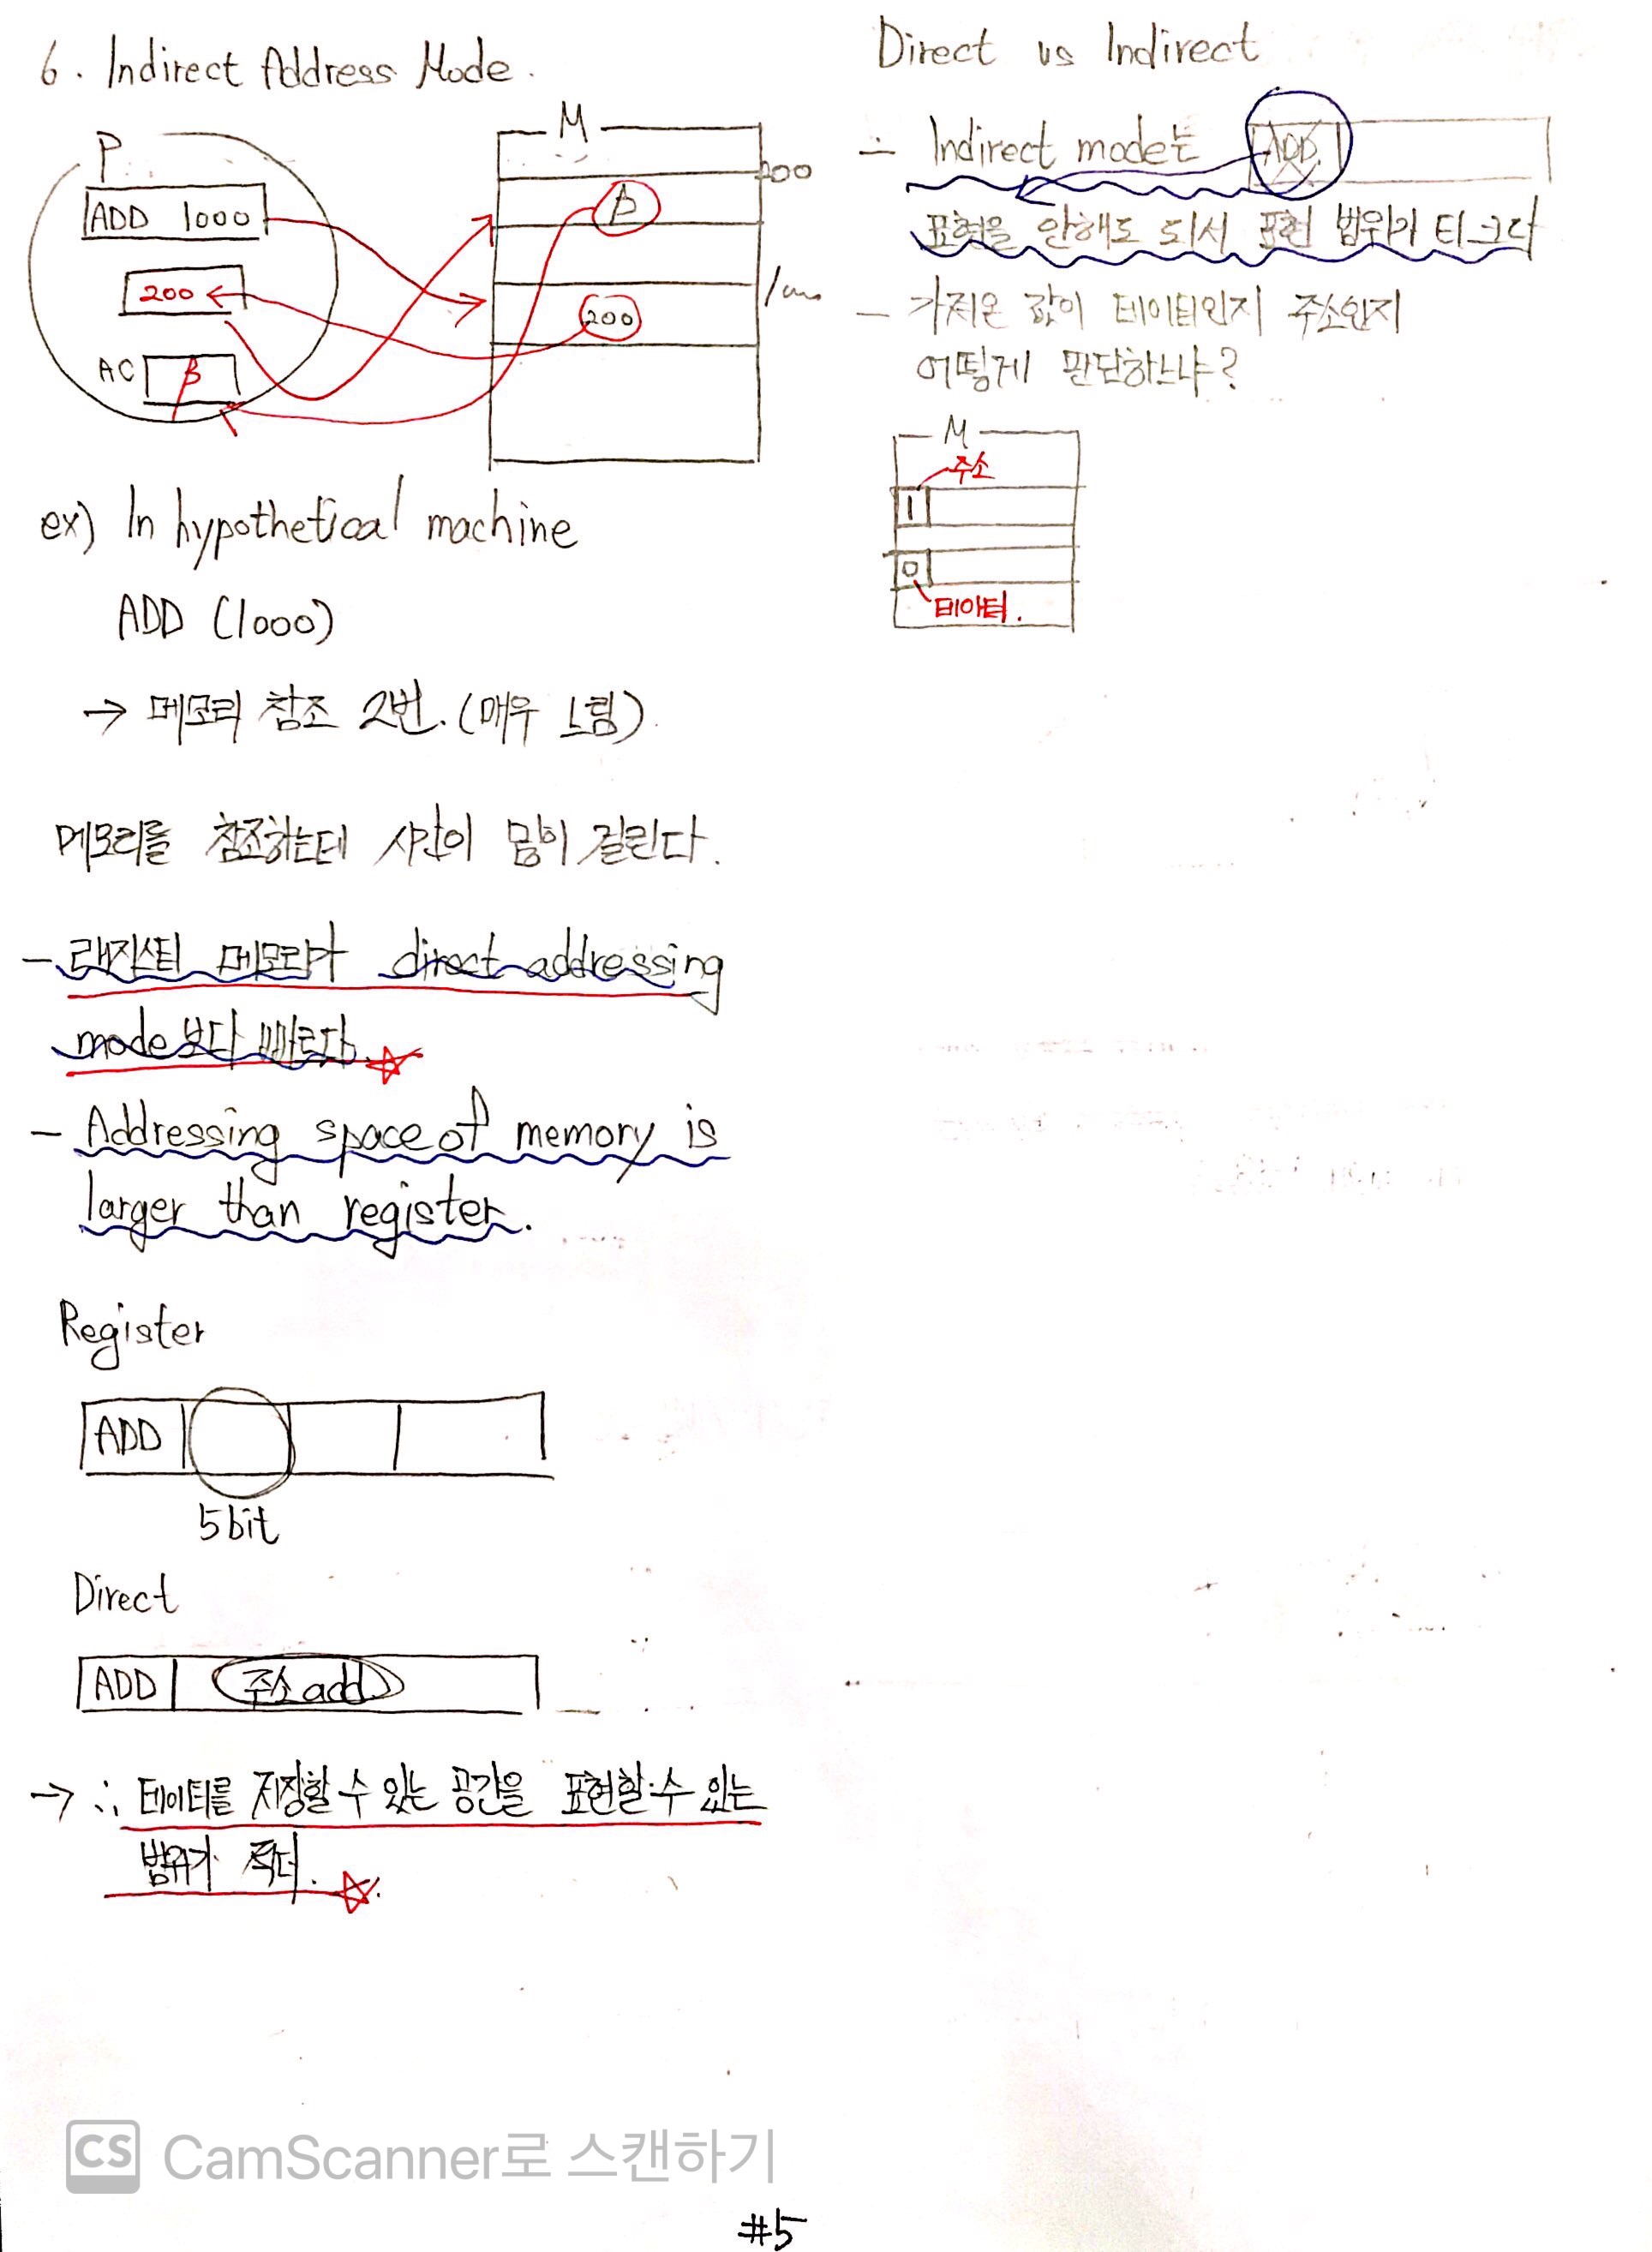 6. Indirect Address Mode.
P
ADD 1000
200
AC β
M
200
β
200
ex) In hypothetical machine
ADD (1000)
→ 메모리 참조 2번. (매우 느림)
메모리를 참조하는데 시간이 많이 걸린다.
- 레지스터 메모리가 direct addressing
mode보다 빠르다.
- Addressing space of memory is
larger than register.
Register
ADD
5bit
Direct
ADD 주소 add
→ ∴ 데이터를 지정할 수 있는 공간을 표현할 수 있는
범위가
Direct vs Indirect
- Indirect mode는 ADD
표현을 안해도 되서 표현 범위가 더 크다
- 가져온 값이 데이터인지 주소인지
어떻게 판단하느냐?
M
주소
1
0
데이터.
CS CamScanner로 스캔하기
#5